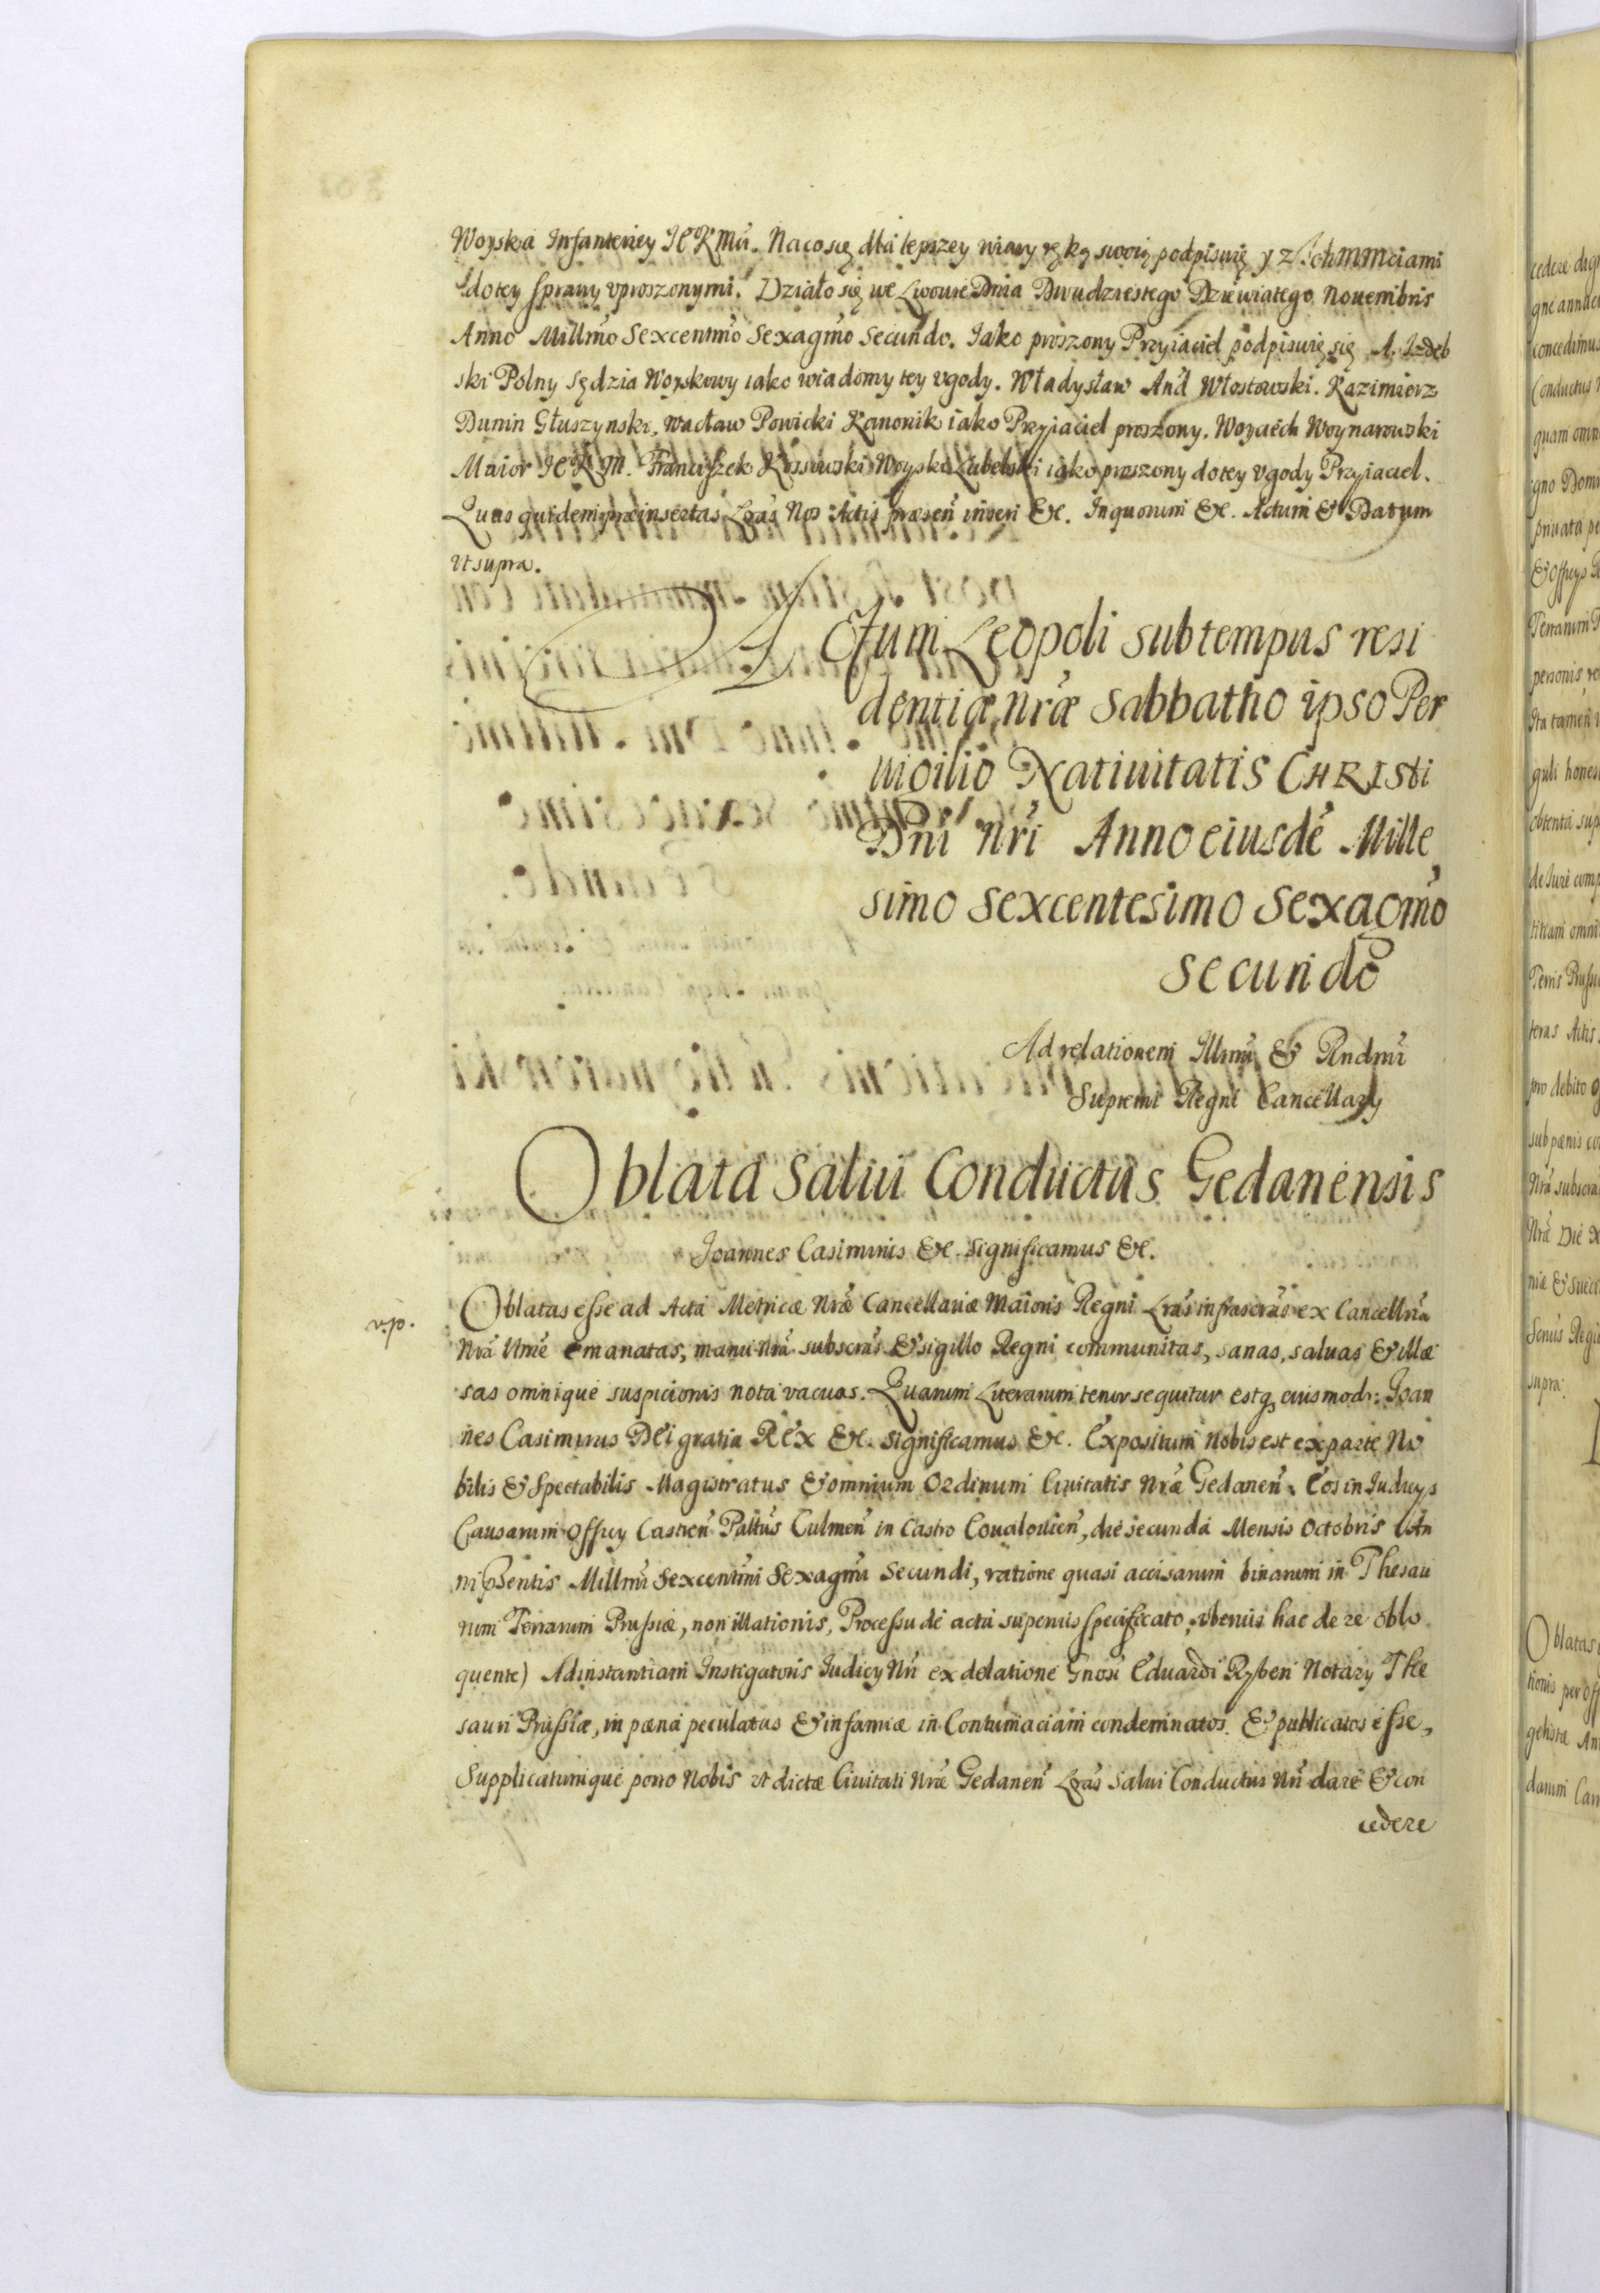 Woyska Infanteriey JEKMći. Na co się dla lepszey wiary ręką swoią podpisuię y z Ichmmciami
do tey sprawy vproszonymi. Działo się we Lwowie Dnia Dwudziestego Dziewiątego Nouembris
Anno Millmo Sexcentmo Sexagmo Secundo. Iako proszony Przyiaciel podpisuię się A. Izdeb
ski Polny Sędzia Woyskowy iako wiadomy tey vgody. Władysław And Włostowski. Kazimierz
Dunin Głuszynski, Wacław Powicki Kanonik iako Przyiaciel proszony. Woyciech Woynarowski
Maior JEKM. Franciszek Kossowski Woyski Lubelski iako proszony do tey vgody Przyiaciel.
Quas quidem præinsertas Lras Nos Actis præsen inseri &c. In quorum &c. Actum & Datum
vt supra.
Actum Leopoli sub tempus resi
dentiæ nræ Sabbatho ipso Per
uigilio Natiuitatis CHRISti
Dni Nri Anno eiusdé Mille
simo Sexcentesimo Sexagmo
Secundo
Ad relationem Illmi & Rndmi
Supremi Regni Cancellarÿ
Oblata Salui Conductus Gedanensis
Joannes Casimirus &c. Significamus &c.
Oblatas esse ad Acta Metricæ Nræ Cancellariæ Maioris Regni Lras infrascras ex Cancellria
Nra Mrie emanatas, manu Nra subscras & sigillo Regni communitas, sanas, saluas & illæ
sas omnique suspicionis nota vacuas. Quarum Literarum tenor sequitur estq eiusmodi: Joan
nes Casimirus Dei gratia Rex &c. Significamus &c. Expositum Nobis est ex parte No
bilis & Spectabilis Magistratus & omnium Ordinum Ciuitatis Nræ Gedanen. Eos in Iudicÿs
Causarum Officÿ Castren Pallus Culmen in Castro Coualouien, die secunda Mensis Octobris An
ni Psentis Millmi Sexcentmi Sexagmi Secundi, ratione quasi accisarum binarum in Thesau
rum Terrarum Prussiæ, non illationis, Processu de actu superius specificato, vberius hac de re oblo
quente) Ad instantiam Instigatoris Iudicÿ Nri ex delatione Gnosi Eduardi Ryberi Notarÿ The
sauri Prussiæ, in pæna peculatus & infamiæ in Contumaciam condemnatos & publicatos esse,
Supplicatumque porro Nobis vt dictæ Ciuitati Nræ Gedanen Lras Salui Conductus Nri dare & con
cedere